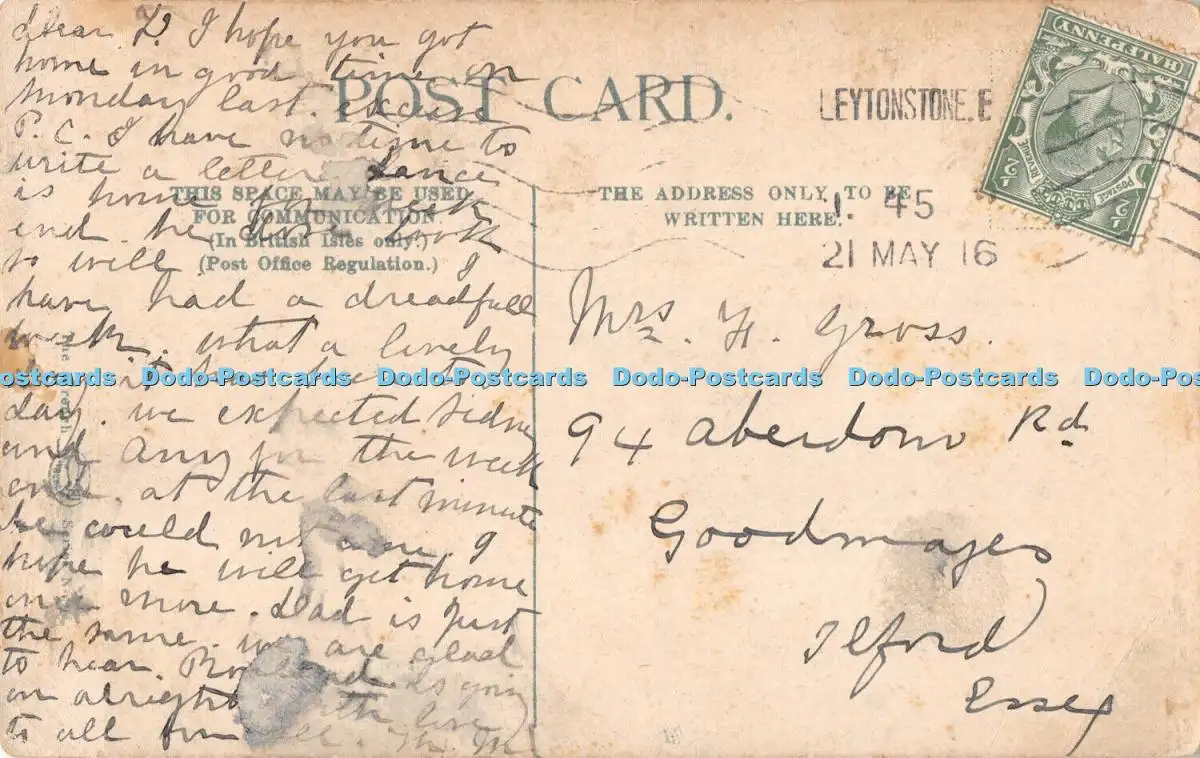 Dear F. I hope you got
home in good time on
Monday last. excuse
P.C. I have no time to
write a letter Lance
is home for week
end. he dose look
so well. I
have had a dreadfull
week. what a lovely
day. we expected Sidney
and Amy for the week
end. at the last minute
he could not come. I
hope he will get home
once more. Dad is just
the same. we are glad
to hear is going
on alright with love
to all from
POST CARD.
THIS SPACE MAY BE USED
FOR COMMUNICATION
(In British Isles only.)
(Post Office Regulation.)
THE ADDRESS ONLY TO BE
WRITTEN HERE.
LEYTONSTONE. E
45
21 MAY 16
POSTAGE REVENUE
HALFPENNY
Mrs H. Gross.
94 Aberdour Rd
Goodmayes
Ilford
Essex
Dodo-Postcards Dodo-Postcards Dodo-Postcards Dodo-Postcards